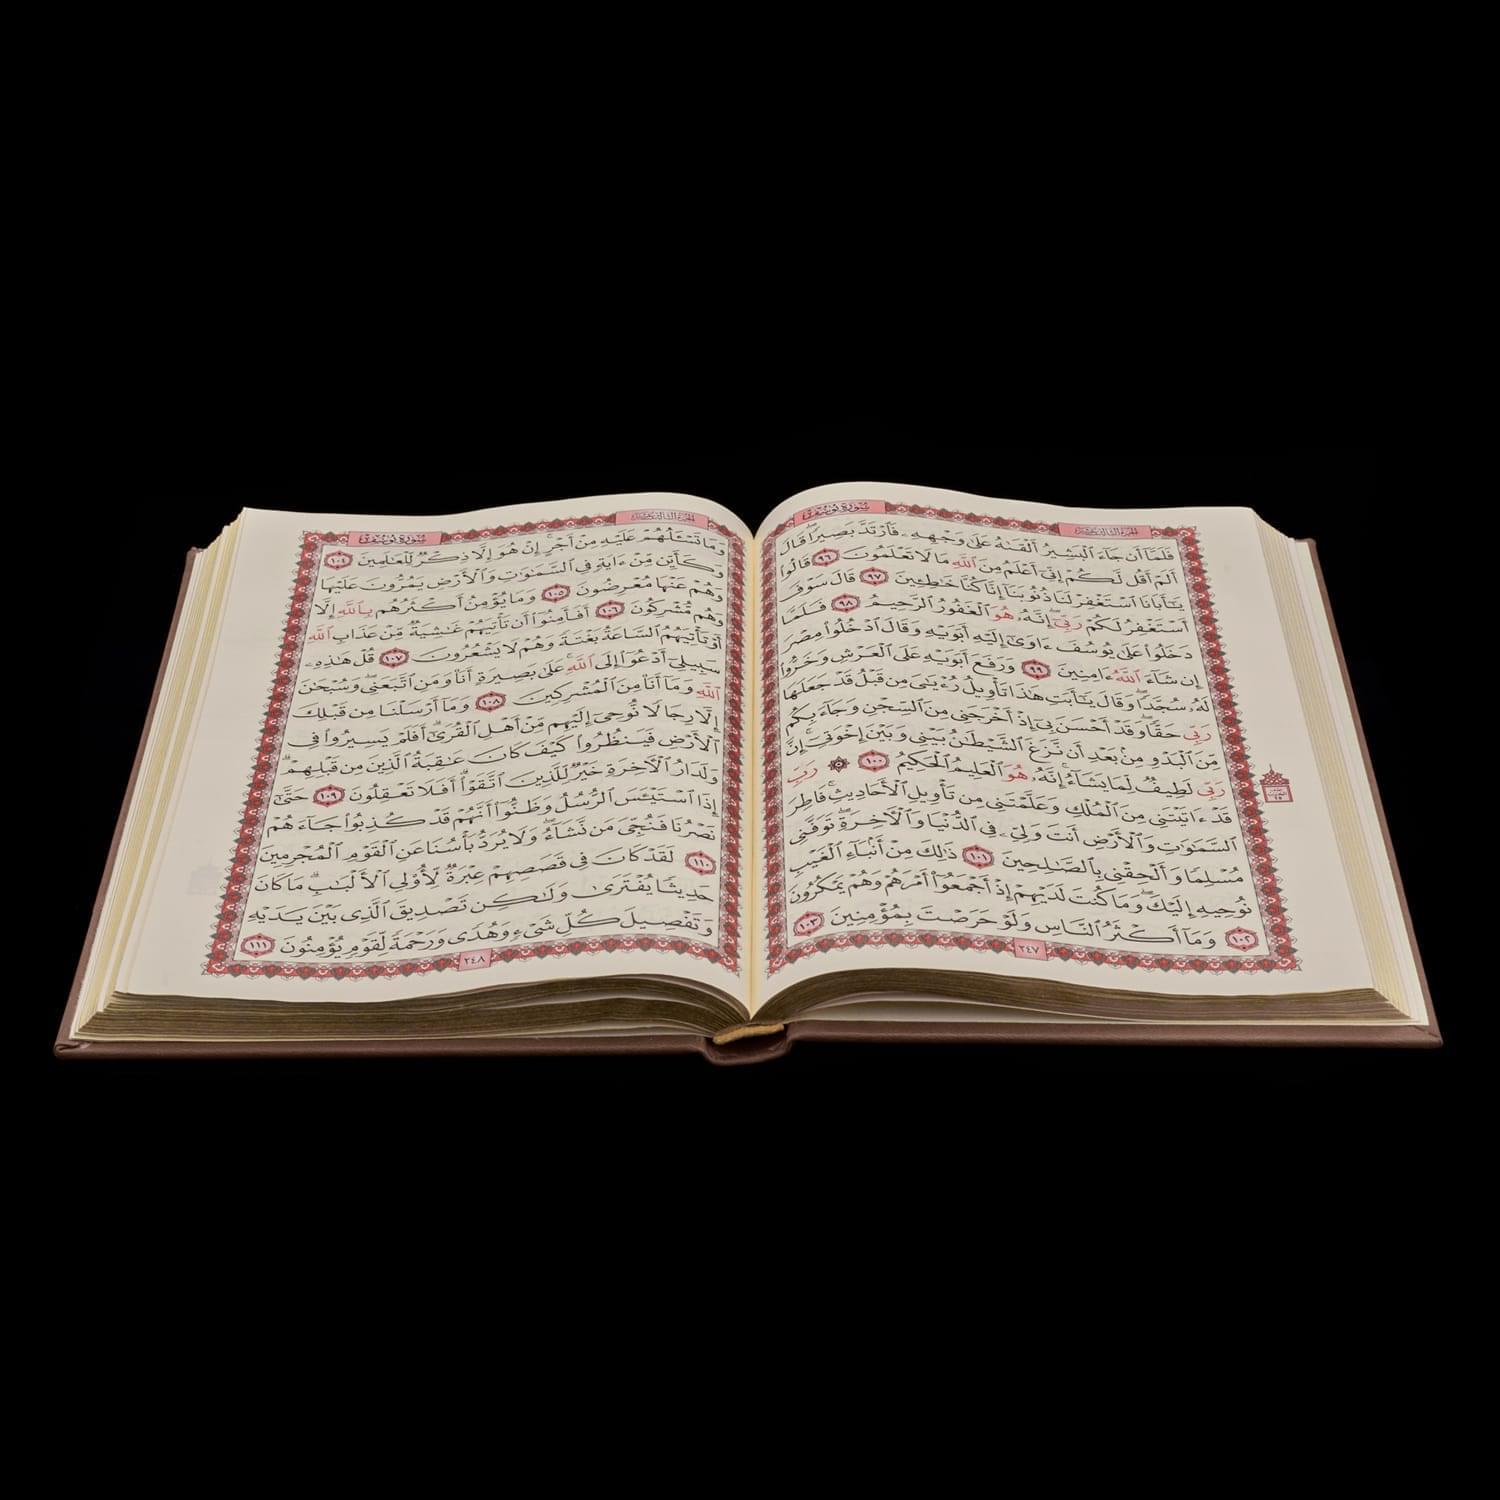 سورة يوسف
الجزء الثالث عشر
فَلَمَّا أَن جَاءَ الْبَشِيرُ أَلْقَىٰهُ عَلَىٰ وَجْهِهِ فَارْتَدَّ بَصِيرًا قَالَ
أَلَمْ أَقُل لَّكُمْ إِنِّي أَعْلَمُ مِنَ اللَّهِ مَا لَا تَعْلَمُونَ ٩٦ قَالُوا
يَا أَبَانَا اسْتَغْفِرْ لَنَا ذُنُوبَنَا إِنَّا كُنَّا خَاطِئِينَ ٩٧ قَالَ سَوْفَ
أَسْتَغْفِرُ لَكُمْ رَبِّي إِنَّهُ هُوَ الْغَفُورُ الرَّحِيمُ ٩٨ فَلَمَّا
دَخَلُوا عَلَىٰ يُوسُفَ ءَاوَىٰ إِلَيْهِ أَبَوَيْهِ وَقَالَ ادْخُلُوا مِصْرَ
إِن شَاءَ اللَّهُ ءَامِنِينَ ٩٩ وَرَفَعَ أَبَوَيْهِ عَلَى الْعَرْشِ وَخَرُّوا
لَهُ سُجَّدًا وَقَالَ يَا أَبَتِ هَٰذَا تَأْوِيلُ رُءْيَٰيَ مِن قَبْلُ قَدْ جَعَلَهَا
رَبِّي حَقًّا وَقَدْ أَحْسَنَ بِي إِذْ أَخْرَجَنِي مِنَ السِّجْنِ وَجَاءَ بِكُم
مِّنَ الْبَدْوِ مِن بَعْدِ أَن نَّزَغَ الشَّيْطَانُ بَيْنِي وَبَيْنَ إِخْوَتِي إِنَّ
رَبِّي لَطِيفٌ لِّمَا يَشَاءُ إِنَّهُ هُوَ الْعَلِيمُ الْحَكِيمُ ١٠٠ رَبِّ
قَدْ ءَاتَيْتَنِي مِنَ الْمُلْكِ وَعَلَّمْتَنِي مِن تَأْوِيلِ الْأَحَادِيثِ فَاطِرَ
السَّمَٰوَٰتِ وَالْأَرْضِ أَنتَ وَلِيِّ فِي الدُّنْيَا وَالْآخِرَةِ تَوَفَّنِي
مُسْلِمًا وَأَلْحِقْنِي بِالصَّالِحِينَ ١٠١ ذَٰلِكَ مِنْ أَنبَاءِ الْغَيْبِ
نُوحِيهِ إِلَيْكَ وَمَا كُنتَ لَدَيْهِمْ إِذْ أَجْمَعُوا أَمْرَهُمْ وَهُمْ يَمْكُرُونَ
١٠٢ وَمَا أَكْثَرُ النَّاسِ وَلَوْ حَرَصْتَ بِمُؤْمِنِينَ ١٠٣
٢٤٧
سورة يوسف
الجزء الثالث عشر
وَمَا تَسْأَلُهُمْ عَلَيْهِ مِنْ أَجْرٍ إِنْ هُوَ إِلَّا ذِكْرٌ لِّلْعَالَمِينَ ١٠٤
وَكَأَيِّن مِّنْ ءَايَةٍ فِي السَّمَٰوَٰتِ وَالْأَرْضِ يَمُرُّونَ عَلَيْهَا
وَهُمْ عَنْهَا مُعْرِضُونَ ١٠٥ وَمَا يُؤْمِنُ أَكْثَرُهُم بِاللَّهِ إِلَّا
وَهُم مُّشْرِكُونَ ١٠٦ أَفَأَمِنُوا أَن تَأْتِيَهُمْ غَاشِيَةٌ مِّنْ عَذَابِ اللَّهِ
أَوْ تَأْتِيَهُمُ السَّاعَةُ بَغْتَةً وَهُمْ لَا يَشْعُرُونَ ١٠٧ قُلْ هَٰذِهِ
سَبِيلِي أَدْعُو إِلَى اللَّهِ عَلَىٰ بَصِيرَةٍ أَنَا وَمَنِ اتَّبَعَنِي وَسُبْحَٰنَ
اللَّهِ وَمَا أَنَا مِنَ الْمُشْرِكِينَ ١٠٨ وَمَا أَرْسَلْنَا مِن قَبْلِكَ
إِلَّا رِجَالًا نُّوحِي إِلَيْهِم مِّنْ أَهْلِ الْقُرَىٰ أَفَلَمْ يَسِيرُوا فِي
الْأَرْضِ فَيَنظُرُوا كَيْفَ كَانَ عَاقِبَةُ الَّذِينَ مِن قَبْلِهِمْ
وَلَدَارُ الْآخِرَةِ خَيْرٌ لِّلَّذِينَ اتَّقَوْا أَفَلَا تَعْقِلُونَ ١٠٩ حَتَّىٰ
إِذَا اسْتَيْئَسَ الرُّسُلُ وَظَنُّوا أَنَّهُمْ قَدْ كُذِبُوا جَاءَهُمْ
نَصْرُنَا فَنُجِّيَ مَن نَّشَاءُ وَلَا يُرَدُّ بَأْسُنَا عَنِ الْقَوْمِ الْمُجْرِمِينَ
١١٠ لَقَدْ كَانَ فِي قَصَصِهِمْ عِبْرَةٌ لِّأُولِي الْأَلْبَابِ مَا كَانَ
حَدِيثًا يُفْتَرَىٰ وَلَٰكِن تَصْدِيقَ الَّذِي بَيْنَ يَدَيْهِ
وَتَفْصِيلَ كُلِّ شَيْءٍ وَهُدًى وَرَحْمَةً لِّقَوْمٍ يُؤْمِنُونَ ١١١
٢٤٨